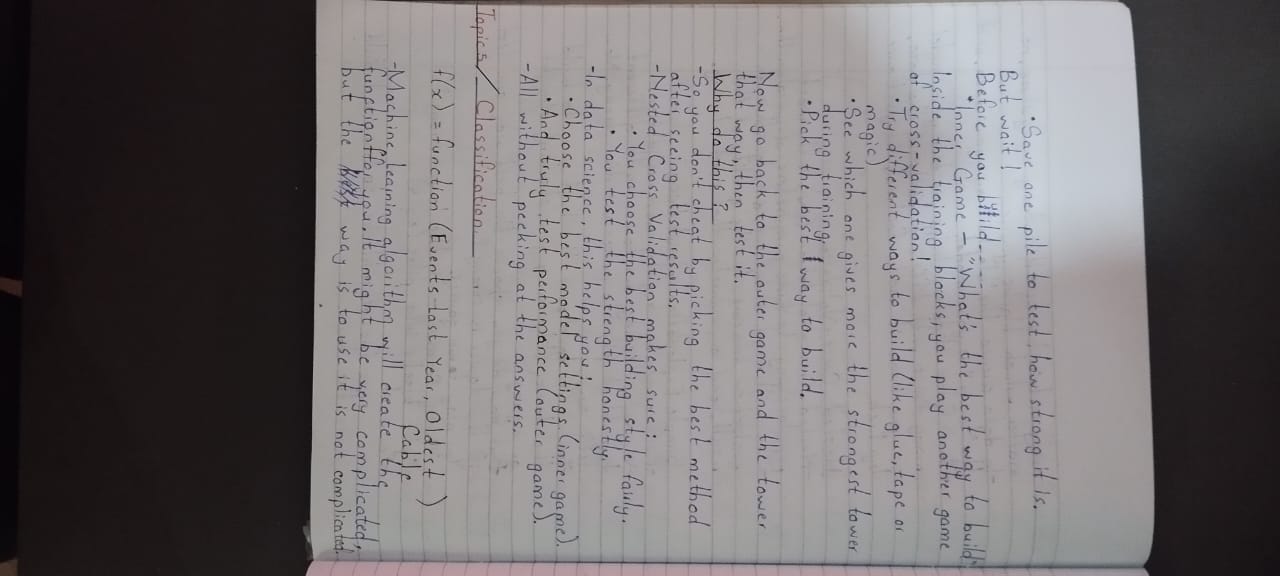 • Save one pile to test, how strong it is.
But wait!
Before you build----
• Inner Game – "What's the best way to build"
Inside the training blocks, you play another game
of cross-validation!
• Try different ways to build (like glue, tape or
magic)
• See which one gives more the strongest tower
during training.
• Pick the best way to build.
Now go back to the outer game and the tower
that way, then test it.
Why do this?
- So you don't cheat by picking the best method
after seeing test results.
- Nested Cross Validation makes sure:
• You choose the best building style fairly.
• You test the strength honestly.
- In data science, this helps you:
• Choose the best model settings (inner game).
• And truly test performance (outer game).
- All without peeking at the answers.
Topics/ Classification
f(x) = function (Events Last Year, Oldest
Cable)
- Machine Learning algorithm will create the
function for you. It might be very complicated,
but the way is to use it is not complicated.